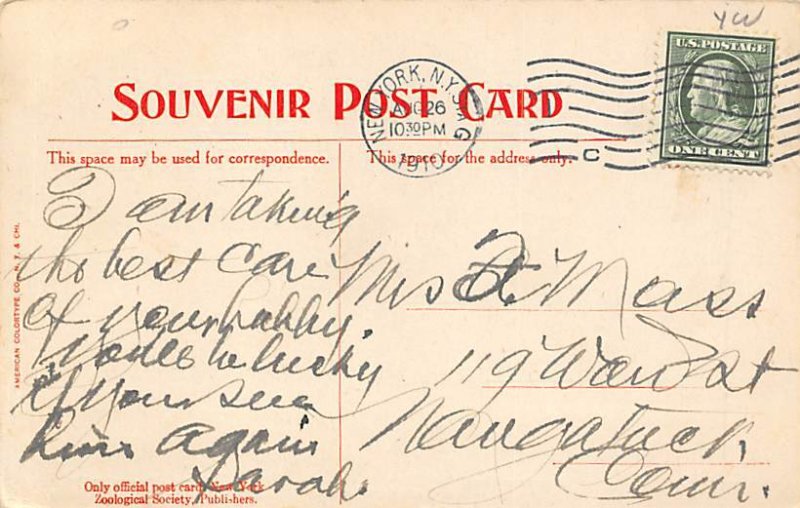 YW
U.S. POSTAGE
ONE CENT
NEW YORK, N.Y. STA. G
AUG 26
10 30 PM
1910
C
SOUVENIR POST CARD
This space may be used for correspondence.
This space for the address only.
I am taking
the best care
of your hubby.
You'll be lucky
if you see
him again
Sarah.
Miss A. Mass
119 Ward St
Naugatuck
Conn.
AMERICAN COLORTYPE CO., N. Y. & CHI.
Only official post card, New York
Zoological Society, Publishers.